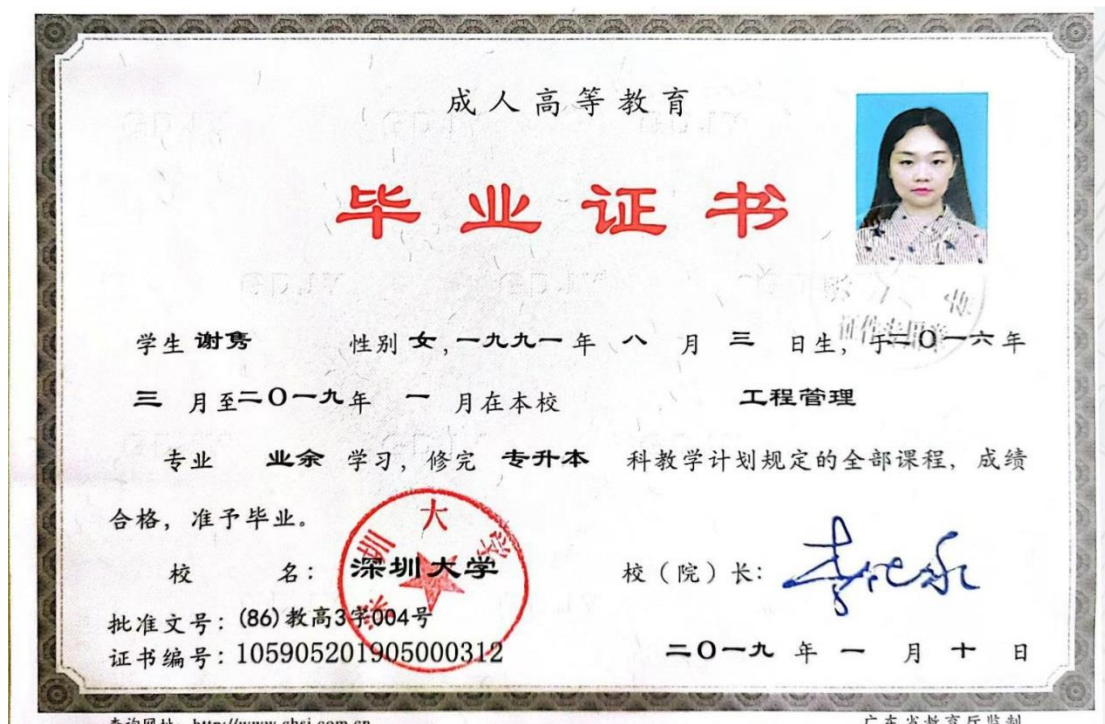 成人高等教育
毕业证书
学生 谢隽 性别 女,一九九一年 八 月 三 日生，于二〇一六年
三 月至二〇一九年 一 月在本校 工程管理
专业 业余 学习，修完 专升本 科教学计划规定的全部课程，成绩
合格，准予毕业。
深圳大学
校 名：深圳大学 校（院）长：
批准文号：(86)教高3字004号
证书编号：105905201905000312 二〇一九 年 一 月 十 日
查询网址：http://www.chsi.com.cn 广东省教育厅监制